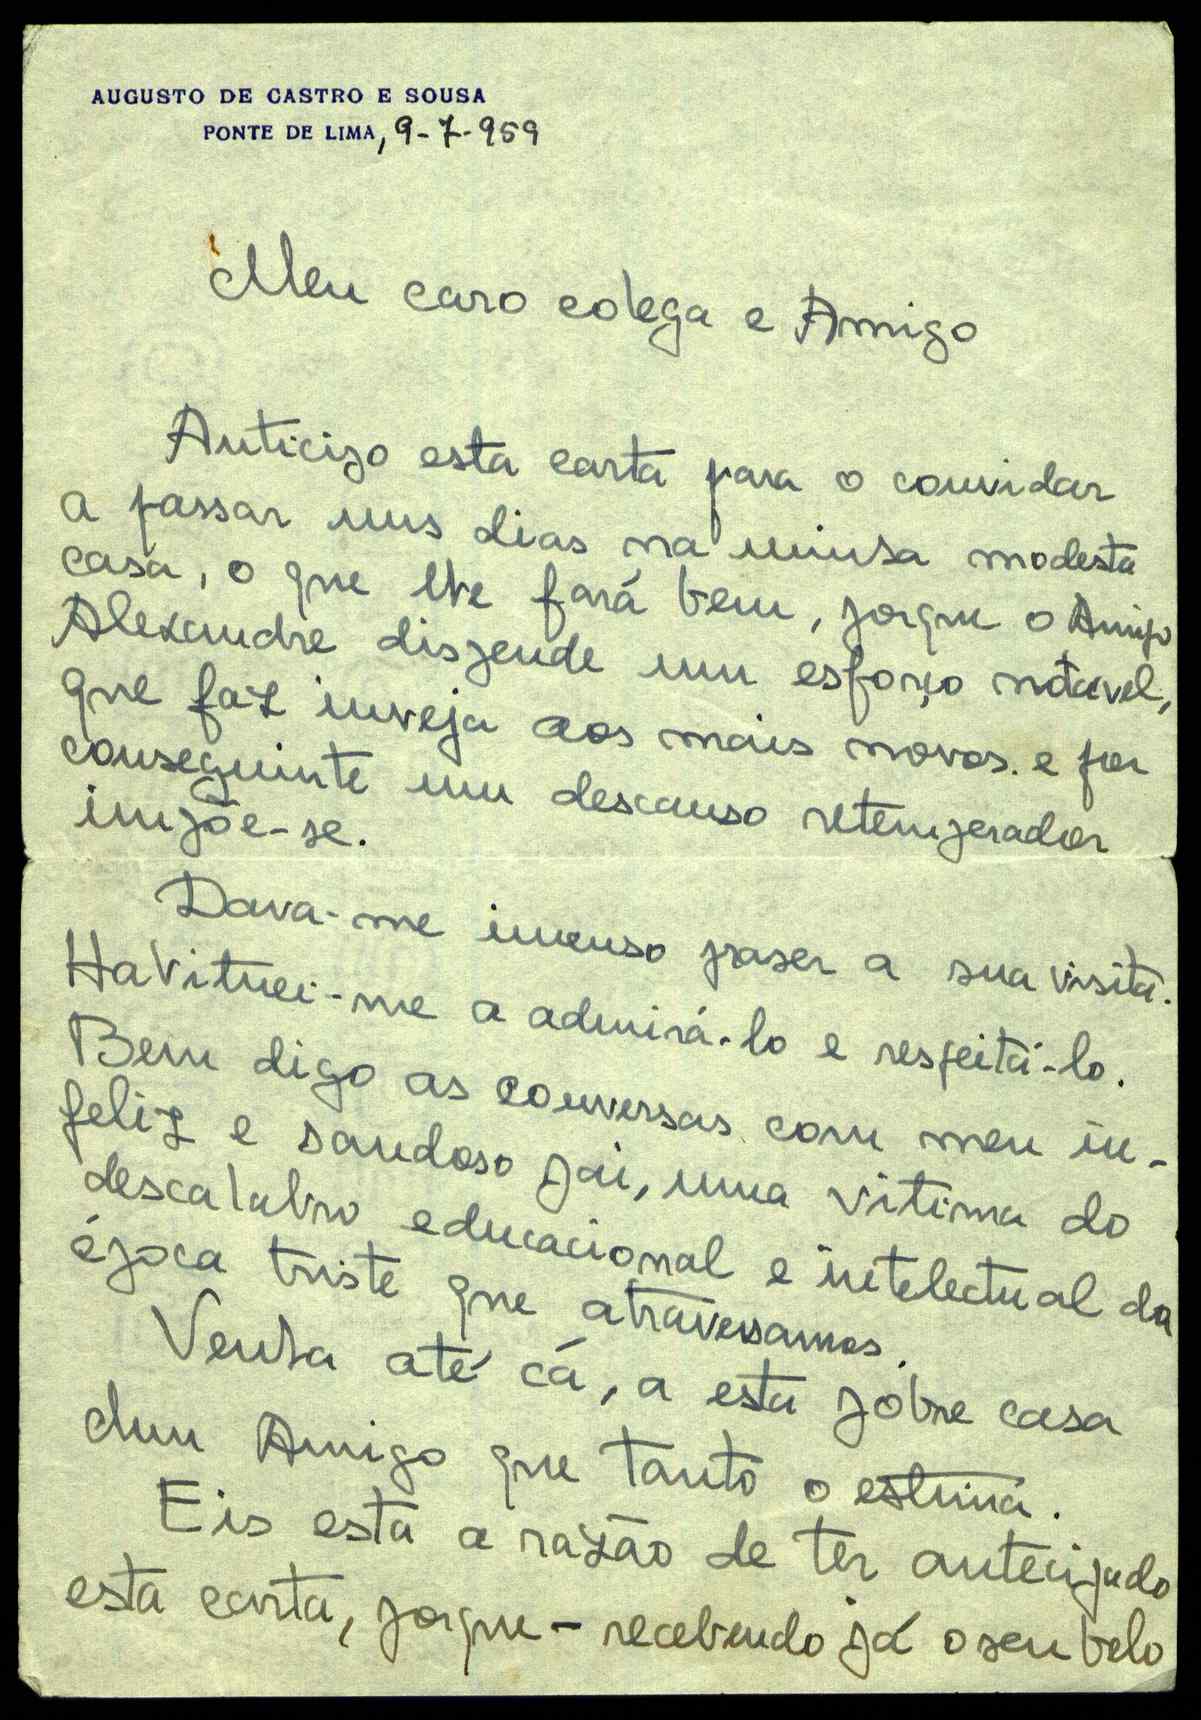 AUGUSTO DE CASTRO E SOUSA
PONTE DE LIMA, 9-7-959
Meu caro colega e Amigo
Anticipo esta carta para o convidar
a passar uns dias na minha modesta
casa, o que lhe fará bem, porque o Amigo
Alexandre dispende um esforço notavel,
que faz inveja aos mais novos. e por
conseguinte um descanso retemperador
impõe-se.
Dava-me imenso praser a sua visita.
Habituei-me a admirá-lo e respeitá-lo.
Bem digo as conversas com meu in-
feliz e saudoso pai, uma vitima do
descalabro educacional e intelectual da
época triste que atravessamos.
Venha até cá, a esta pobre casa
dum Amigo que tanto o estima.
Eis esta a razão de ter antecipado
esta carta, porque - recebendo já o seu belo